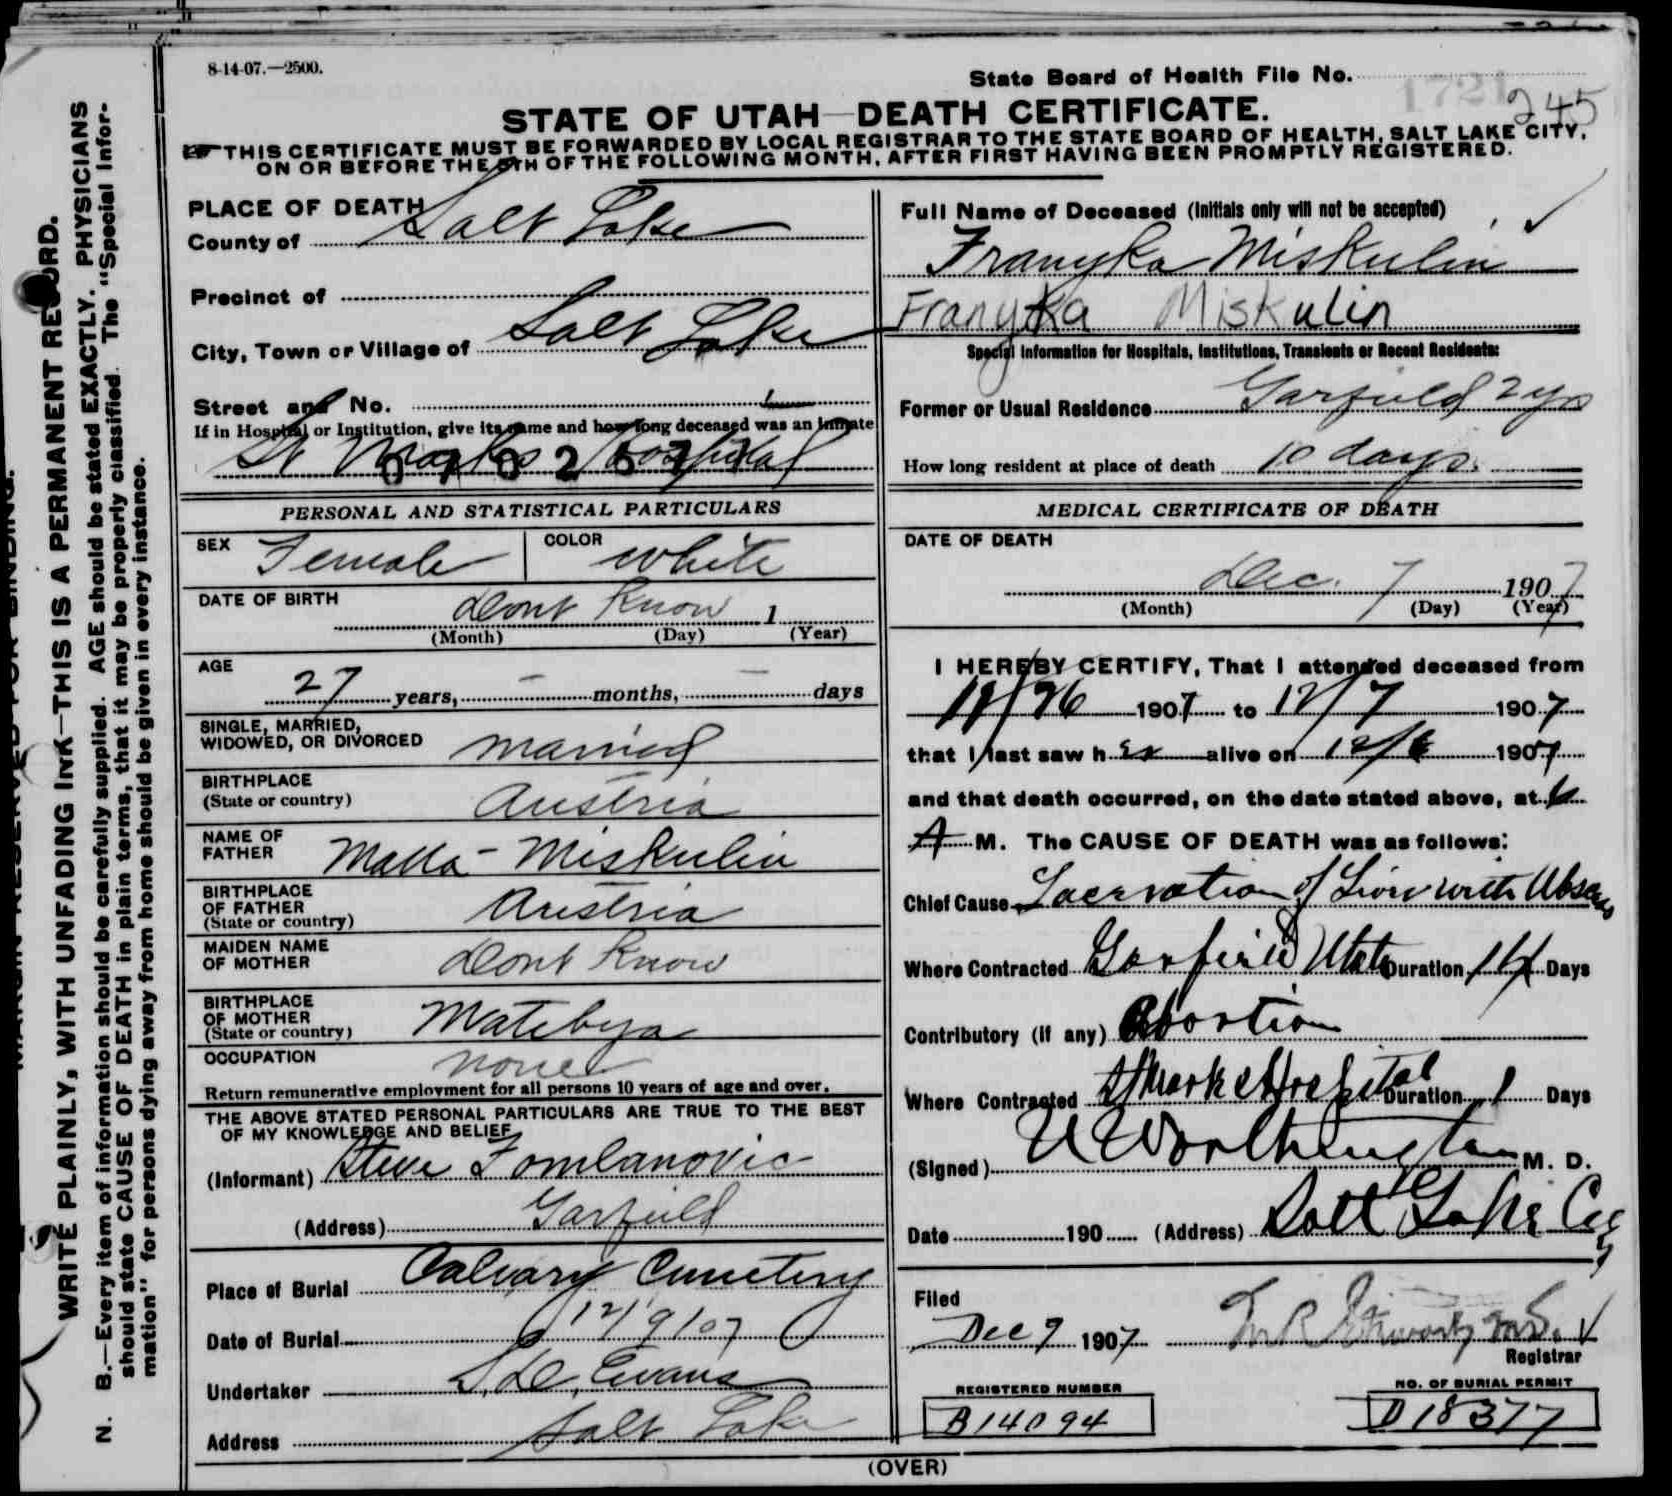 8-14-07.—2500.
State Board of Health File No. 1721
245
STATE OF UTAH—DEATH CERTIFICATE.
THIS CERTIFICATE MUST BE FORWARDED BY LOCAL REGISTRAR TO THE STATE BOARD OF HEALTH, SALT LAKE CITY,
ON OR BEFORE THE 5TH OF THE FOLLOWING MONTH, AFTER FIRST HAVING BEEN PROMPTLY REGISTERED.
PLACE OF DEATH
County of Salt Lake
Precinct of
City, Town or Village of Salt Lake
Street and No.
If in Hospital or Institution, give its name and how long deceased was an Inmate
St Marks Hospital
PERSONAL AND STATISTICAL PARTICULARS
SEX Female COLOR White
DATE OF BIRTH Dont Know 1
(Month) (Day) (Year)
AGE
27 years, — months, — days
SINGLE, MARRIED,
WIDOWED, OR DIVORCED married
BIRTHPLACE
(State or country) Austria
NAME OF
FATHER Miskulin
BIRTHPLACE
OF FATHER
(State or country) Austria
MAIDEN NAME
OF MOTHER Dont Know
BIRTHPLACE
OF MOTHER
(State or country)
OCCUPATION none
Return remunerative employment for all persons 10 years of age and over.
THE ABOVE STATED PERSONAL PARTICULARS ARE TRUE TO THE BEST
OF MY KNOWLEDGE AND BELIEF
(Informant) Steve Tomlanovic
(Address) Garfield
Place of Burial Calvary Cemetery
Date of Burial 12/9/07
Undertaker S. D. Evans
Address Salt Lake
Full Name of Deceased (Initials only will not be accepted)
Franyka Miskulin
Franyka Miskulin
Special Information for Hospitals, Institutions, Transients or Recent Residents:
Former or Usual Residence Garfield 2 yrs
How long resident at place of death 10 days.
MEDICAL CERTIFICATE OF DEATH
DATE OF DEATH
Dec. 7 1907
(Month) (Day) (Year)
I HEREBY CERTIFY, That I attended deceased from
1907 to 12/7 1907
that I last saw her alive on 12/6 1907
and that death occurred, on the date stated above, at 6
A M. The CAUSE OF DEATH was as follows:
Chief Cause Laceration of Liver with Abscess
Where Contracted Garfield Utah Duration 14 Days
Contributory (if any) Abortion
Where Contracted St Marks Hospital Duration 1 Days
(Signed) Worthington M. D.
Date 190 (Address) Salt Lake City
Filed
Dec 9 1907
Registrar
REGISTERED NUMBER
B14094
NO. OF BURIAL PERMIT
D18377
(OVER)
MARGIN RESERVED FOR BINDING.
WRITE PLAINLY, WITH UNFADING INK—THIS IS A PERMANENT RECORD.
N. B.—Every item of information should be carefully supplied. AGE should be stated EXACTLY. PHYSICIANS
should state CAUSE OF DEATH in plain terms, that it may be properly classified. The "Special Infor-
mation" for persons dying away from home should be given in every instance.